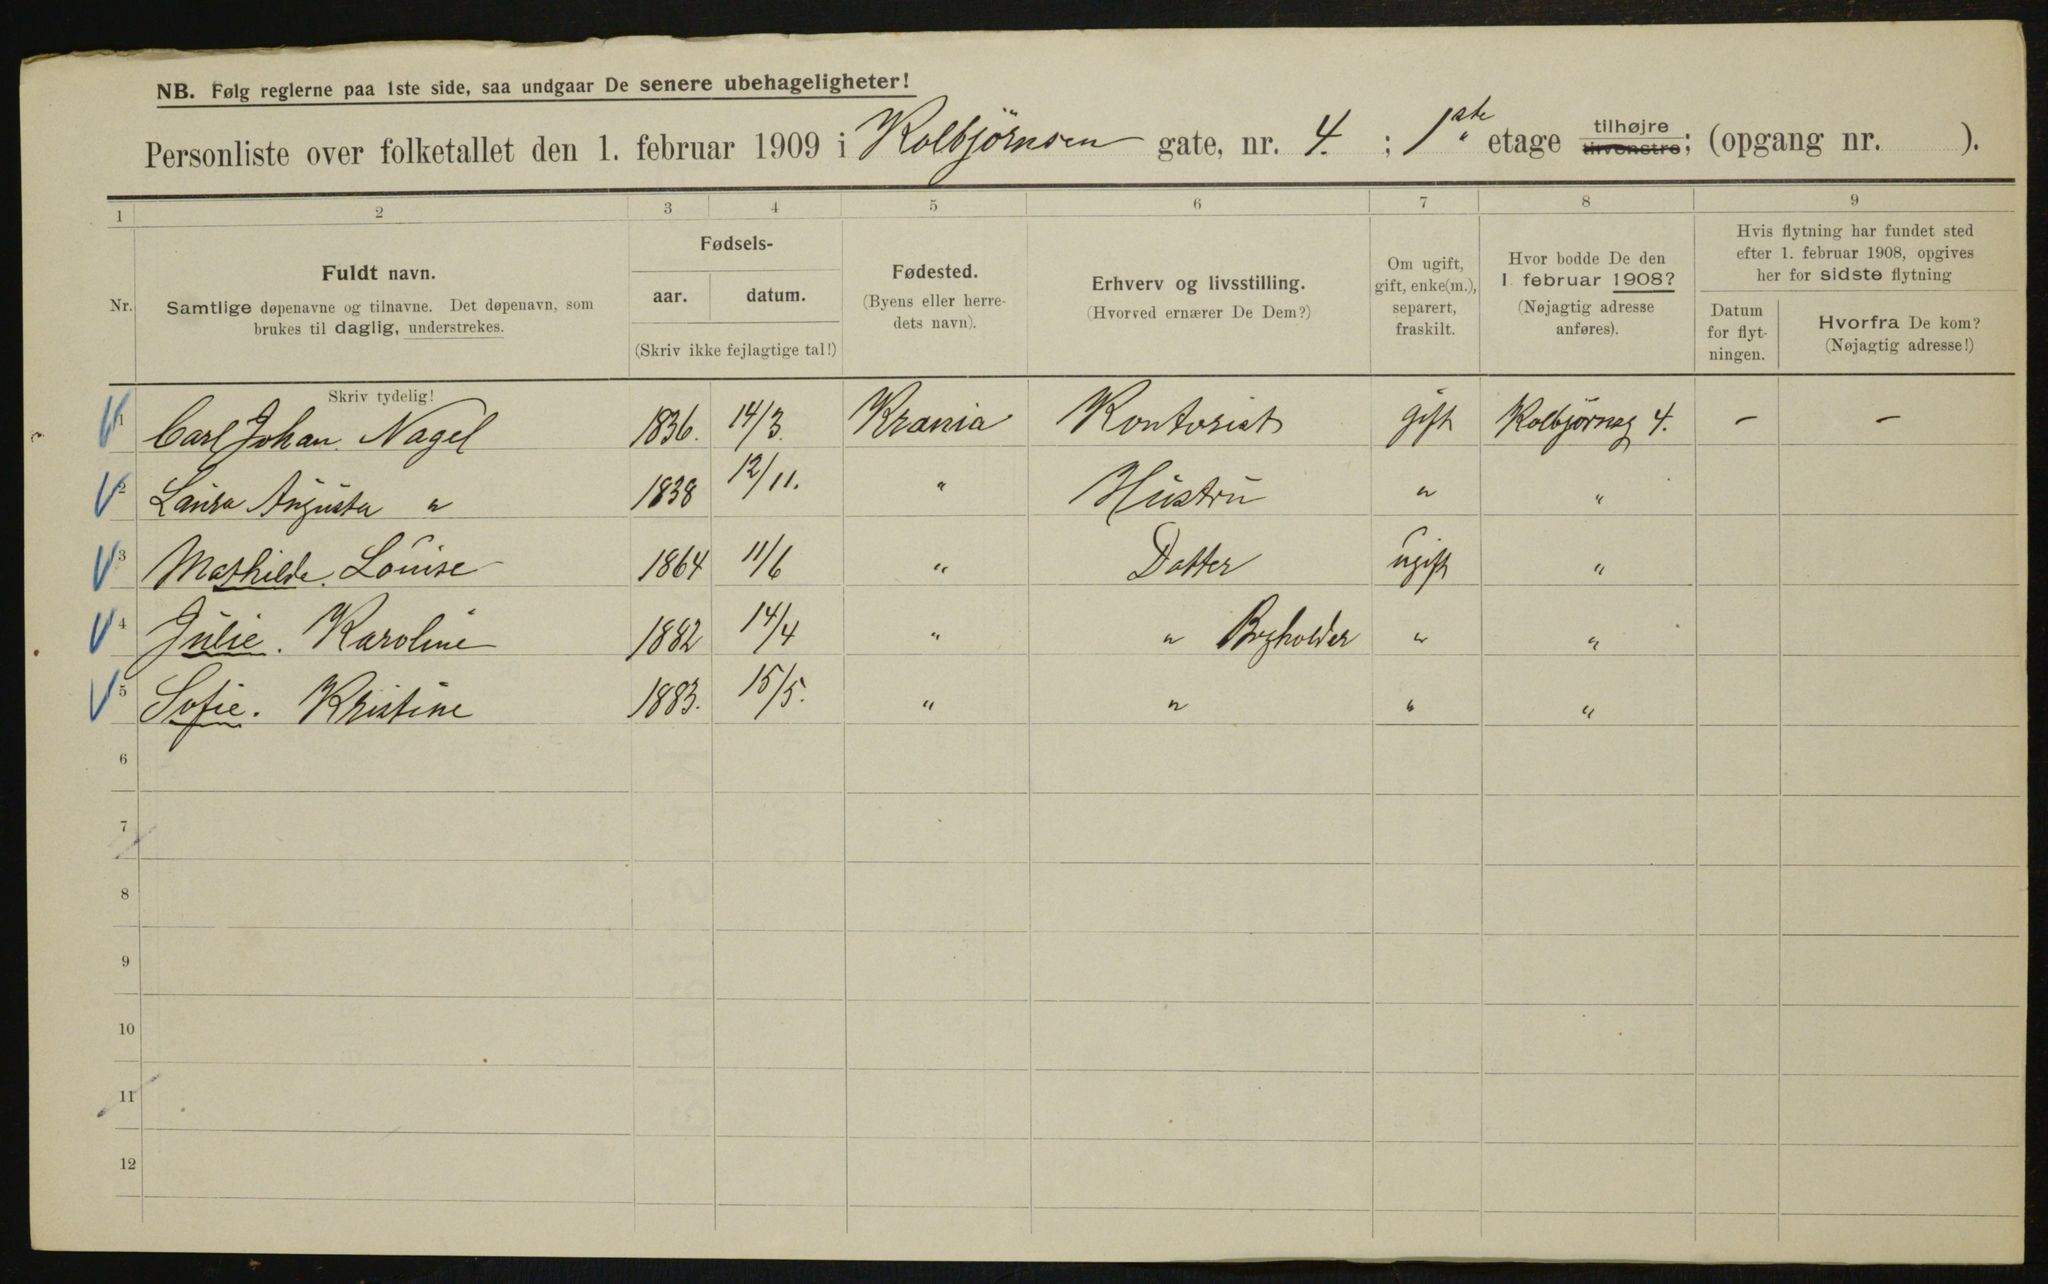 NB. Følg reglerne paa 1ste side, saa undgaar De senere ubehageligheter!
Personliste over folketallet den 1. februar 1909 i Kolbjørnsen gate, nr. 4. ; 1ste etage tilhøjre tilvenstre; (opgang nr. ).
1 2 3 4 5 6 7 8 9
Nr.
Fuldt navn.
Samtlige døpenavne og tilnavne. Det døpenavn, som
brukes til daglig, understrekes.
Fødsels-
aar. datum.
(Skriv ikke fejlagtige tal!)
Fødested.
(Byens eller herre-
dets navn).
Erhverv og livsstilling.
(Hvorved ernærer De Dem?)
Om ugift,
gift, enke(m.),
separert,
fraskilt.
Hvor bodde De den
1. februar 1908?
(Nøjagtig adresse
anføres).
Hvis flytning har fundet sted
efter 1. februar 1908, opgives
her for sidste flytning
Datum
for flyt-
ningen.
Hvorfra De kom?
(Nøjagtig adresse!)
Skriv tydelig!
1 Carl Johan. Nagel 1836. 14/3. Krania Kontorist gift Kolbjørnsg 4. - -
2 Laura Augusta " 1838 12/11. " Hustru " "
3 Mathilde. Louise 1864 11/6 " Datter ugift "
4 Julie. Karoline 1882 14/4 " " Bogholder " "
5 Sofie. Kristine 1883. 15/5. " " " "
6
7
8
9
10
11
12